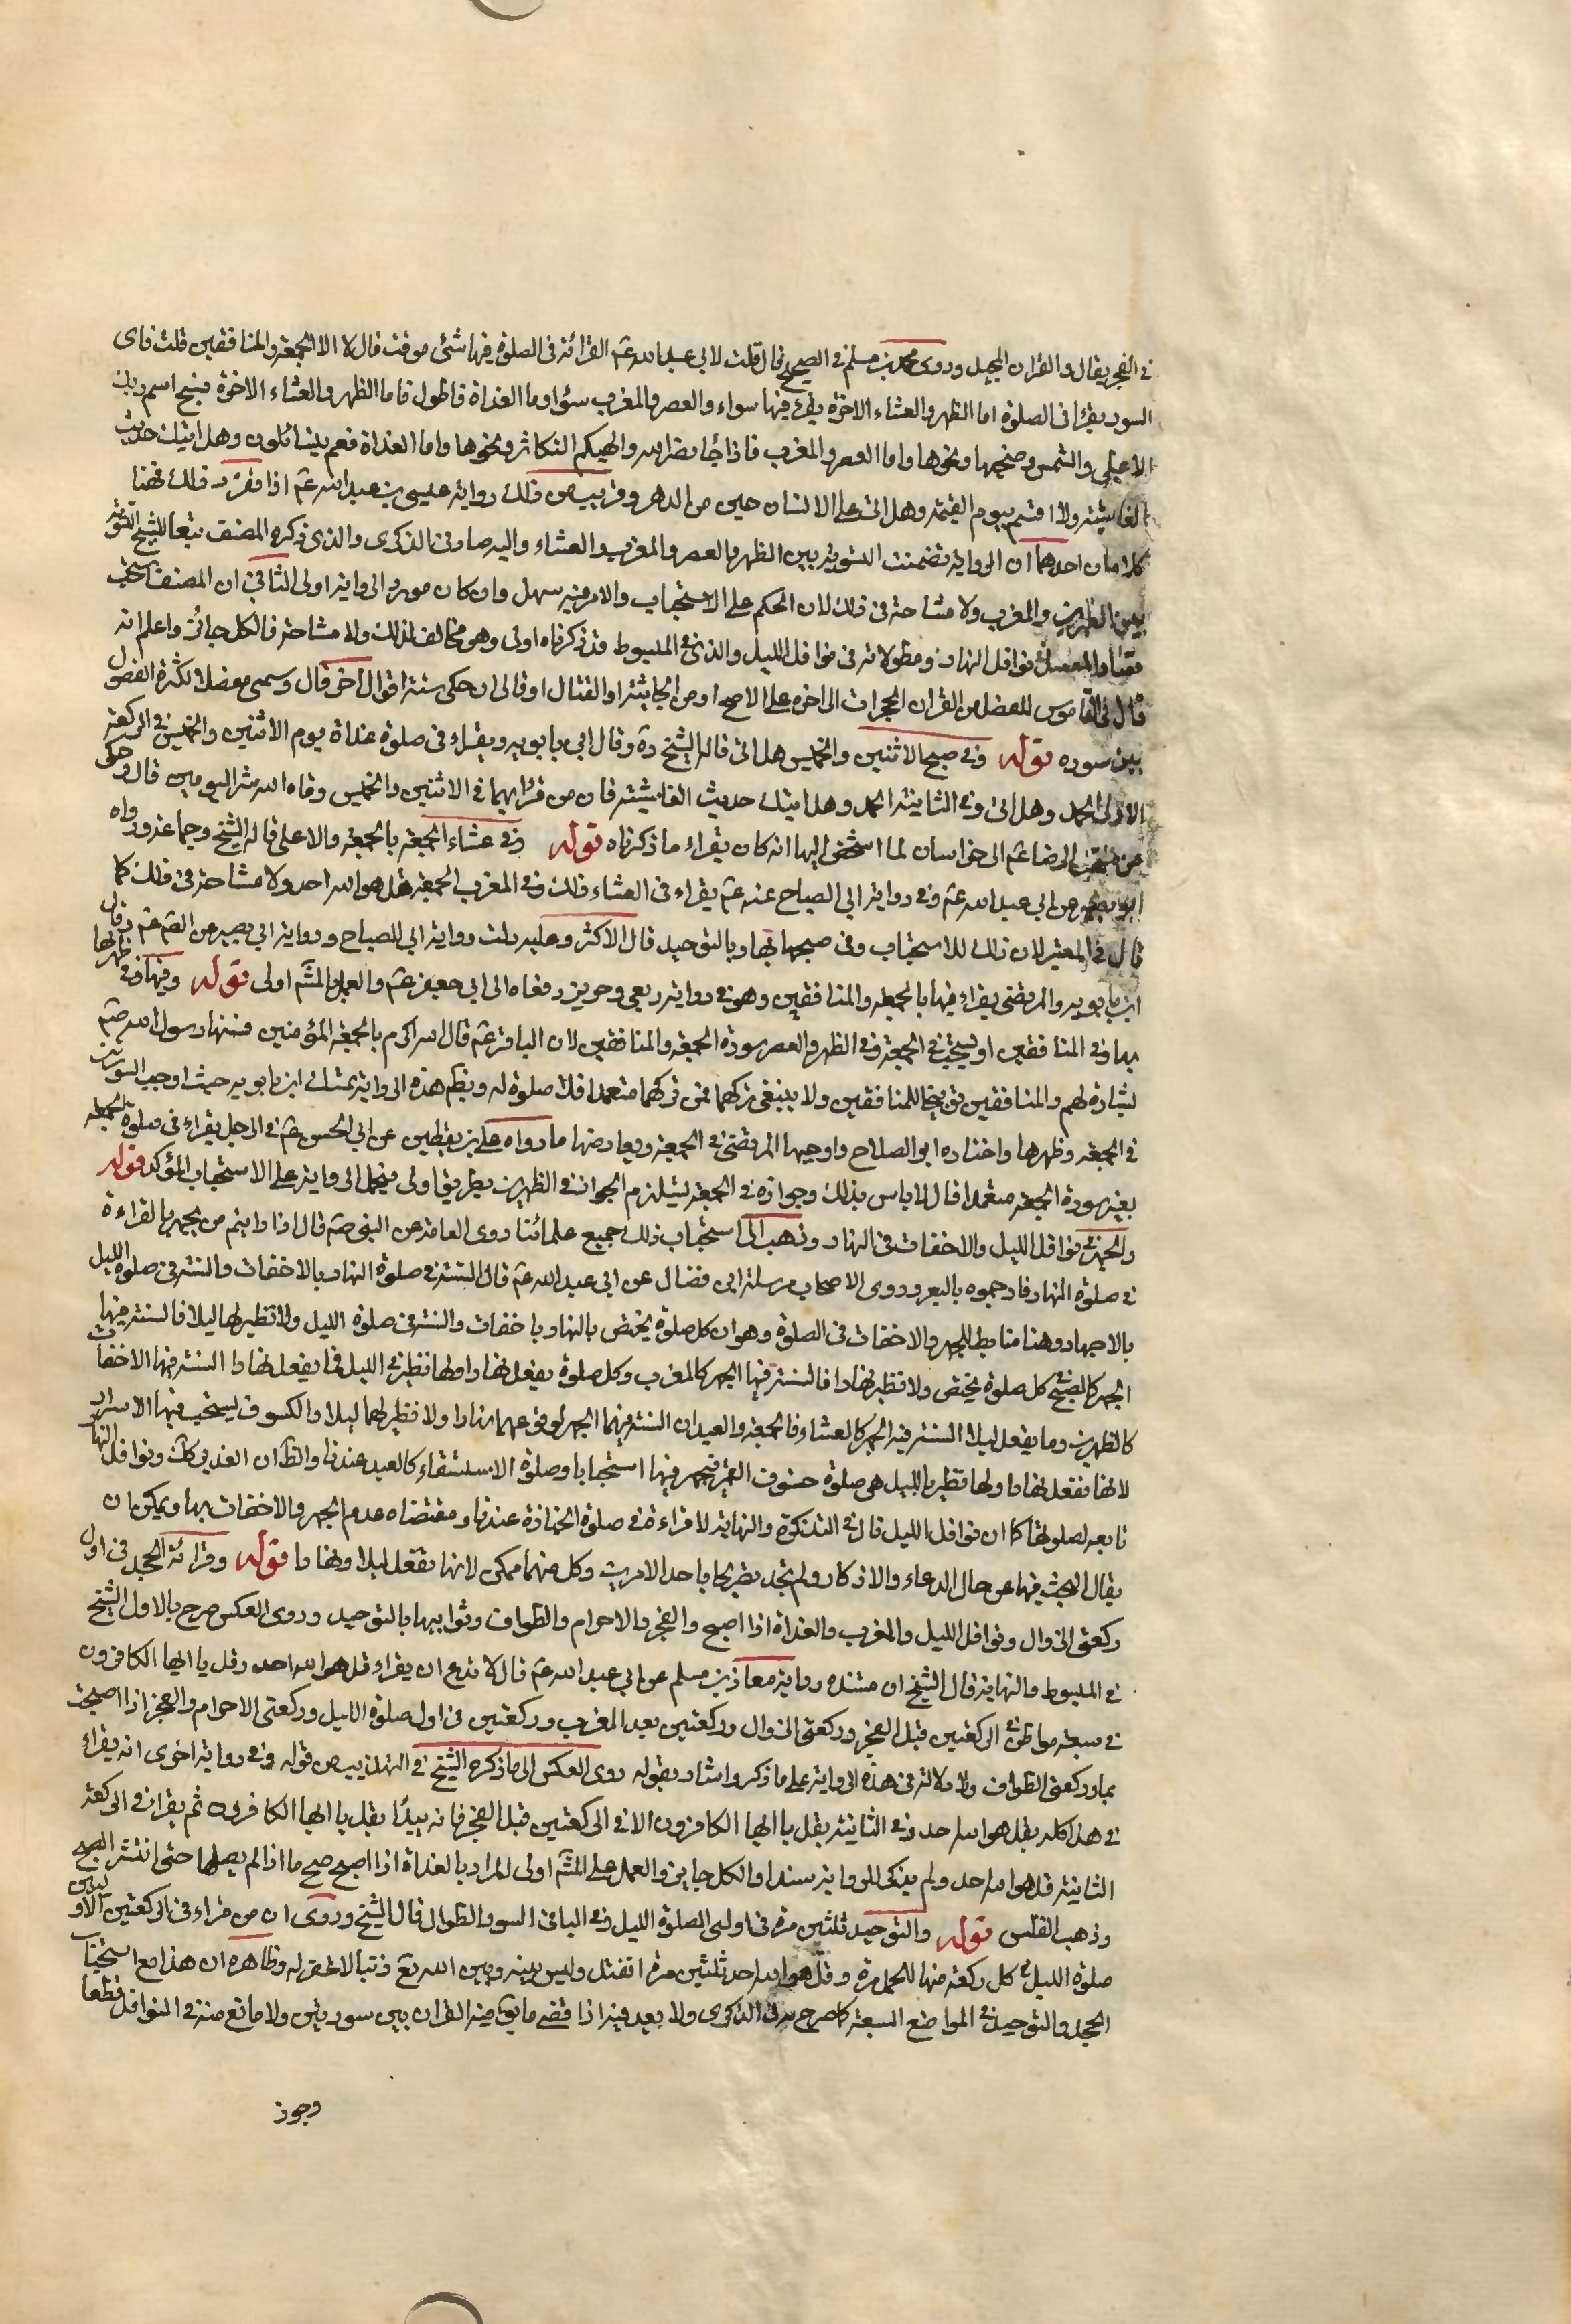 في الفجر يقال والقرآن المجيد وروى محمد بن مسلم في الصحيح قال قلت لابي عبد الله عم القرائة في الصلوة فيها شئ موقت قال لا الا الجمعة والمنافقين قلت فاى
السور يقرا في الصلوة اما الظهر والعشاء الاخرة يقرء فيها سواء والعصر والمغرب سواء واما الغداة فاطول فاما الظهر والعشاء الاخرة فسبح اسم ربك
الاعلى والشمس وضحيها ونحوها واما العصر والمغرب فاذا جاء نصر الله والهيكم التكاثر ونحوها واما الغداة فعم يتسائلون وهل اتيك حديث
الغاشية ولا اقسم بيوم القيمة وهل اتى على الانسان حين من الدهر وقريب من ذلك رواية عيسى بن عبد الله عم اذا تقرر ذلك فهنا
كلامان احدهما ان الرواية تضمنت التسوية بين الظهر والعصر والمغرب والعشاء واليه صار في الذكرى والذى ذكره المصنف تبعا للشيخ التسوية
بين الظهرين والمغرب ولا مشاحة في ذلك لان الحكم على الاستحباب والامر فيه سهل وان كان مورد الرواية اولى الثاني ان المصنف يستحب
المفصل في نوافل النهار ومطولاته في نوافل الليل والذى في المبسوط قد ذكرناه اولى وهو مخالف لذلك ولا مشاحة فالكل جائز واعلم انه
قال في القاموس المفصل من القران الحجرات الى اخره على الاصح او من الجاثية او القتال او قاف الى ان حكى ستة اقوال اخر قال وسمى مفصلا لكثرة الفصول
بين سوره قوله وفي صبح الاثنين والخميس هل اتى قاله الشيخ ره وقال ابن بابويه ويقراء في صلوة غداة يوم الاثنين والخميس في الركعة
الاولى الحمد وهل اتى وفي الثانية الحمد وهل اتيك حديث الغاشية فان من قراهما في الاثنين والخميس وقاه الله شر اليومين قال وحكى
من صحب الرضا عم الى خراسان لما اشخص اليها انه كان يقراء ما ذكرناه قوله وفي عشاء الجمعة بالجمعة والاعلى قاله الشيخ وجماعة ورواه
ابو بصير عن ابي عبد الله عم وفي رواية ابي الصباح عنه عم يقراء في العشاء ذلك وفي المغرب الجمعة وقل هو الله احد ولا مشاحة في ذلك كما
قال في المعتبر لان ذلك للاستحباب وفي صبحها بها وبالتوحيد قال الاكثر وعليه دلت رواية ابي الصباح ورواية ابي بصير عن الصم عم وقال
ابن بابويه والمرتضى يقراء فيها بالجمعة والمنافقين وهو في رواية ربعي وحريز رفعاه الى ابي جعفر عم والعمل بالمشم اولى قوله وفيها وفي ظهرها
بها وفي المنافقين او يستحب في الجمعة وفي الظهر والعصر سورة الجمعة والمنافقين لان الباقر عم قال الله اكرم بالجمعة المؤمنين فسنها رسول الله صم
بشارة لهم والمنافقين توبيخا للمنافقين ولا ينبغي تركهما فمن تركهما متعمدا فلا صلوة له وبظهر هذه الرواية تمسك ابن بابويه حيث اوجب السورتين
في الجمعة وظهرها واختاره ابو الصلاح واوجبها المرتضى في الجمعة ويعارضها ما رواه على بن يقطين عن ابي الحسن عم في الرجل يقراء في صلوة الجمعة
بغير سورة الجمعة متعمدا قال لا باس بذلك وجوازه في الجمعة يستلزم الجواز في الظهرين بطريق اولى فيحمل الرواية على الاستحباب المؤكد قوله
والجهر في نوافل الليل والاخفات في النهار وذهب الى استحباب ذلك جميع علمائنا روى العامة عن النبي صم قال اذا رايتم من يجهر بالقراءة
في صلوة النهار فارجموه بالبعر وروى الاصحاب مرسلة ابن فضال عن ابي عبد الله عم قال السنة في صلوة النهار بالاخفات والسنة في صلوة الليل
بالاجهار وهنا ضابط للجهر والاخفات في الصلوة وهو ان كل صلوة يختص بالنهار باخفات والسنة في صلوة الليل ولا نظير لها ليلا فالسنة فيها
الجهر كالصبح كل صلوة يختص ولا نظير نهارا فالسنة فيها الجهر كالمغرب وكل صلوة يفعل نهارا ولها نظير في الليل فما يفعل نهارا السنة فيها الاخفات
كالظهرين وما يفعل ليلا السنة فيه الجهر كالعشاء فالجمعة والعيدان السنة فيهما الجهر لوقوعهما نهارا ولا نظير لهما ليلا والكسوف يستحب فيها الاسرار
لانها تفعل نهارا ولها نظير بالليل هي صلوة خسوف القمر فيجهر فيها استحبابا وصلوة الاستسقاء كالعيد عندنا والظ ان الغدير كك ونوافل النهار
تابعه لصلوتها كما ان نوافل الليل قال في التذكرة والنهاية لا قراءة في صلوة الجنازة عندنا ومقتضاه عدم الجهر والاخفات بها ويمكن ان
يقال البحث فيها عن حال الدعاء والاذكار ولم نجد تصريحا باحد الامرين وكل منهما ممكن لانها تفعل ليلا ونهارا قوله وقرائة الجحد في اول
ركعتي الزوال ونوافل الليل والمغرب والغداة اذا اصبح والفجر والاحرام والطواف وثوانيها بالتوحيد وروى العكس صرح بالاول الشيخ
في المبسوط والنهاية قال الشيخ ان مستنده رواية معاذ بن مسلم عن ابي عبد الله عم قال لا تدع ان يقراء قل هو الله احد وقل يا ايها الكافرون
في سبعة مواطن في الركعتين قبل الفجر وركعتي الزوال وركعتين بعد المغرب وركعتين في اول صلوة الليل وركعتي الاحرام والفجر اذا اصبحت
بها وركعتي الطواف ولا دلالة في هذه الرواية على ما ذكر واشار بقوله روى العكس الى ما ذكره الشيخ في التهذيب من قوله وفي رواية اخرى انه يقراء
في هذا كله بقل هو الله احد وفي الثانية بقل يا ايها الكافرون الا في الركعتين قبل الفجر فانه يبدا بقل يا ايها الكافرون ثم يقرا في الركعة
الثانية قل هو الله احد ولم يذكر للرواية سندا والكل جايز والعمل على المشم اولى المراد بالغداة اذا اصبح صبح ما اذا لم يصلها حتى انتشر الصبح
وذهب الغلس قوله والتوحيد ثلثين مرة في اولى الصلوة الليل وفي البافي السور الطوال قال الشيخ وروى ان من قراء في الركعتين الاوليين
صلوة الليل في كل ركعة منها الحمد مرة وقل هو الله احد ثلثين مرة انفتل وليس بينه وبين الله تع ذنبا الا غفر له وظاهره ان هذا مع استحباب
الجحد والتوحيد في المواضع السبعة كما صرح به في الذكرى ولا بعد فيه اذا قضى ما بقى منه القران بين سورتين ولا مانع منه في النوافل قطعا
وجوز